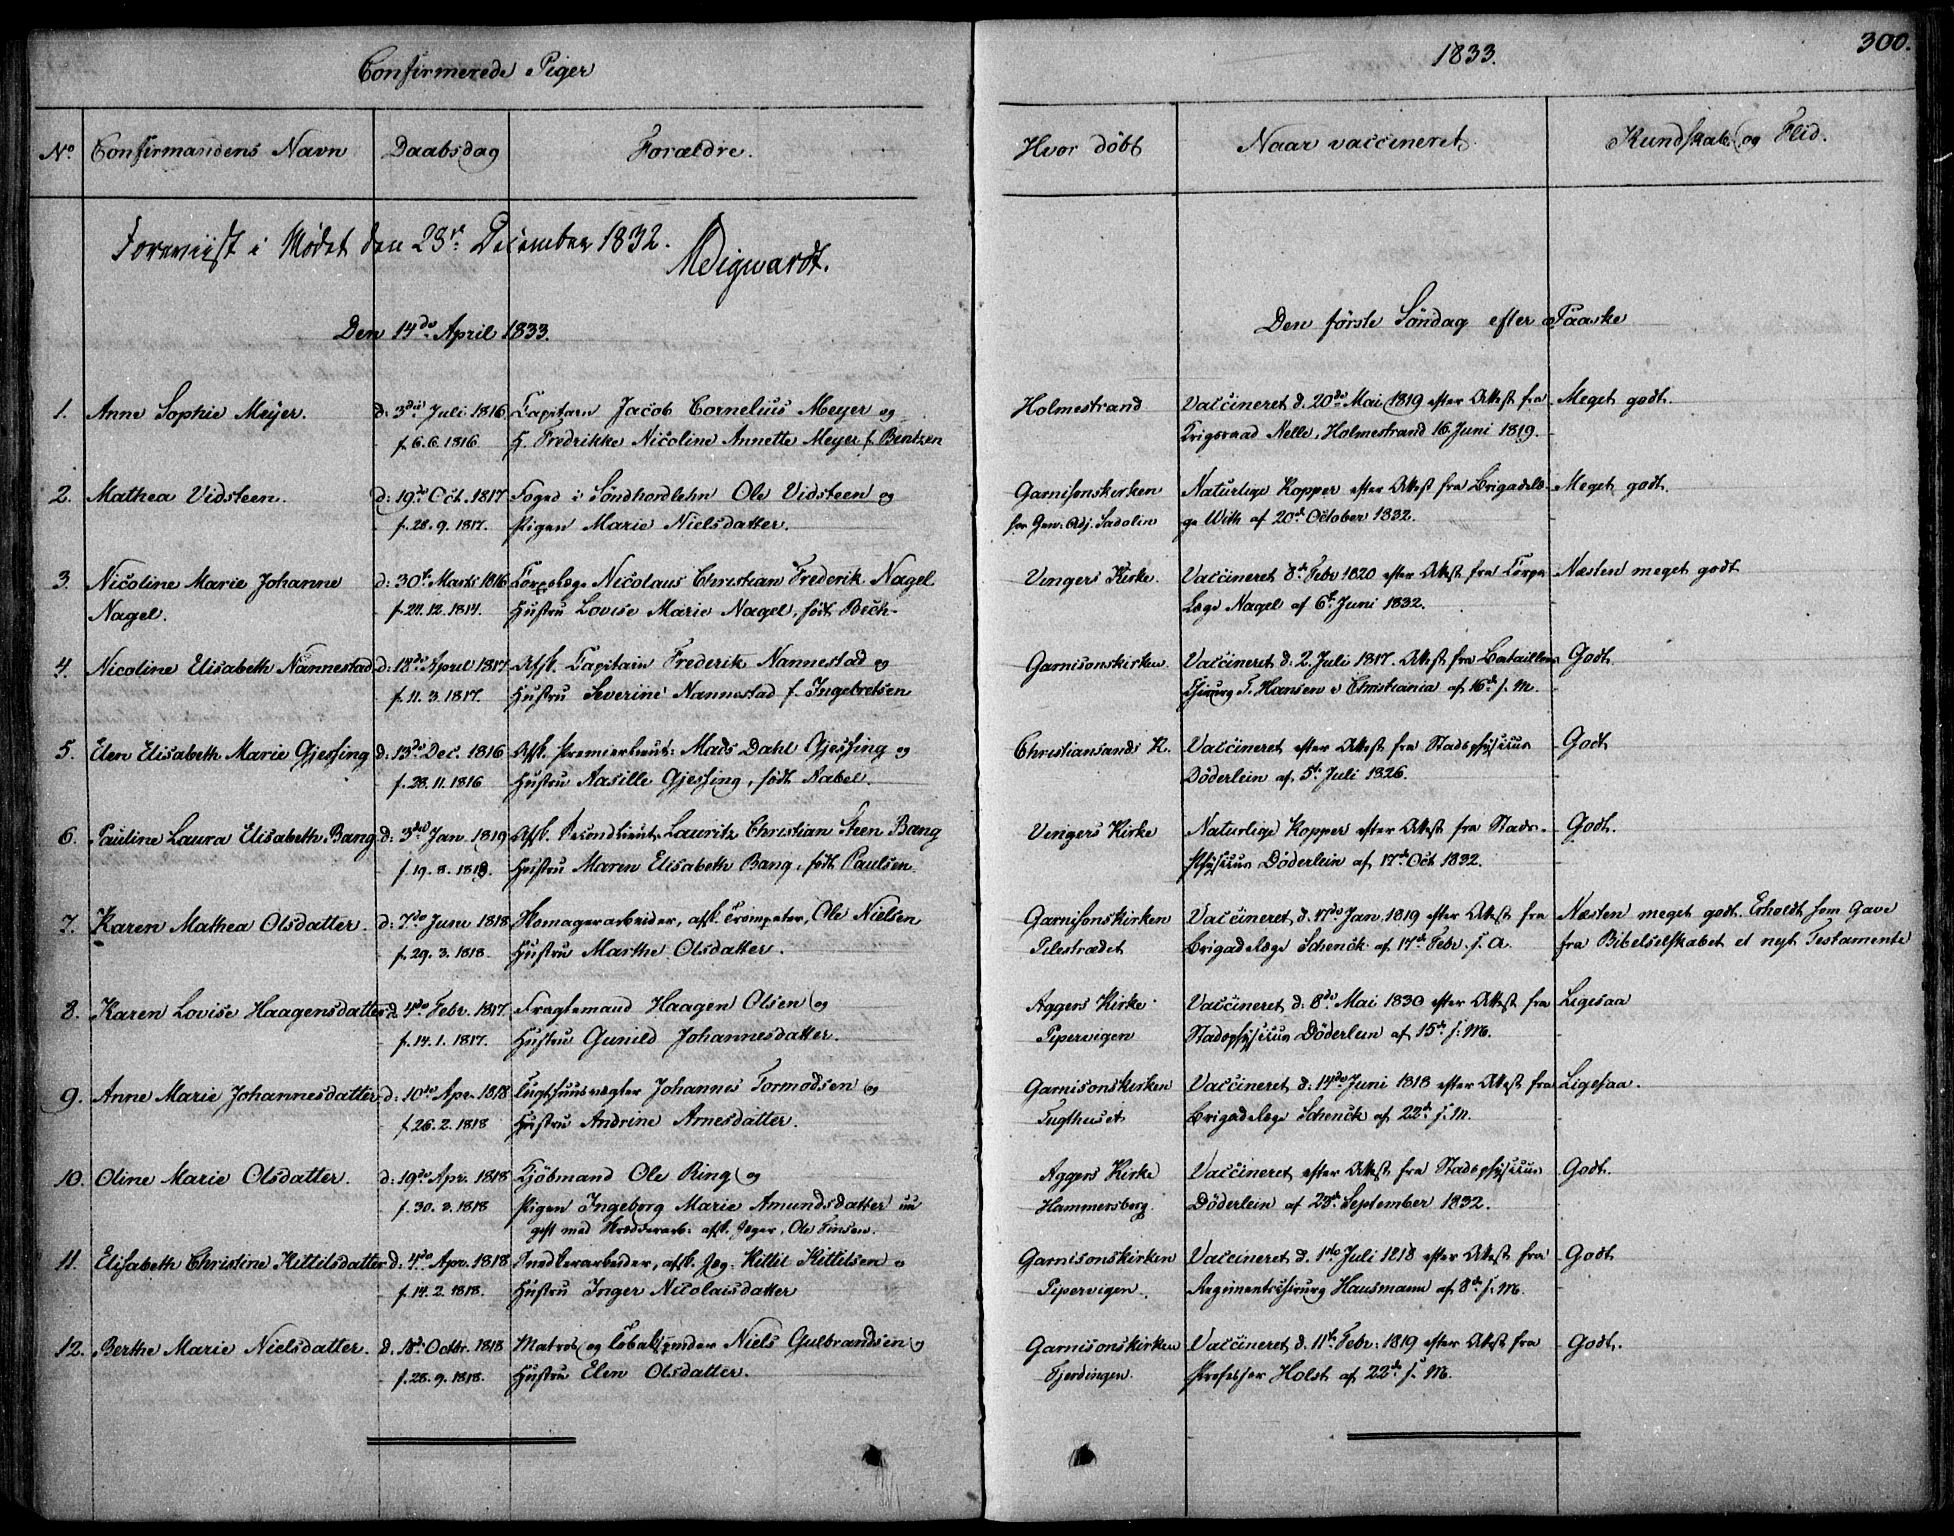 Confirmerede Piger
1833.
300.
No Confirmandens Navn Daabsdag Forældre. Hvor döbt Naar vaccineret. Kundskab og Flid.
Foreviist i Mödet den 23de December 1832.
Den 14de April 1833. Den förste Söndag efter Paaske
1. Anne Sophie Meyer. d: 3die Juli 1816 Capitain Jacob Cornelius Meyer og Holmestrand Vaccineret d. 20de Mai 1819 efter Attest fra Meget godt.
f. 6.6.1816 H. Fredrikke Nicoline Annette Meyer f. Bentzen Krigsraad Nelle, Holmestrand 16. Juni 1819.
2. Mathea Vidsteen. d: 19de Oct. 1817 Foged i Söndhordlehn Ole Vidsteen og Garnisonskirken Naturlige Kopper efter Attest fra Brigadelæ- Meget godt.
f. 28.9.1817. Pigen Marie Nielsdatter. for Gen: Adj. Sadolin ge With af 20de October 1832.
3. Nicoline Marie Johanne d: 30te Marts 1816 Corpslæge Nicolaus Christian Frederik Nagel Vingers Kirke. Vaccineret 8de Febr 1820 efter Attest fra Corps Næsten meget godt
Nagel. Hustru Lovise Marie Nagel, födt Bech. Læge Nagel af 6te Juni 1832.
4. Nicoline Elisabeth Nannestad d: 18de April 1817 Afsk. Capitain Frederik Nannestad og Garnisonskirken Vaccineret d: 2. Juli 1817. Attest fra Bataillons Godt.
f. 11.3.1817. Hustru Severine Nannestad f. Ingebretsen Chirurg F. Hansen i Christiania af 16de s. M.
5. Elen Elisabeth Marie Gjessing d: 13de Dec. 1816 Afsk. Premierlieut: Mads Dahl Gjessing og Christiansands K. Vaccineret efter Attest fra Stadsphysicus Godt
f. 28.11.1816 Hustru Aasille Gjessing, födt Aabel. Döderlein af 5te Juli 1826.
6. Pauline Laura Elisabeth Bang d: 3die Jan. 1819 Afsk. Secondlieut. Lauritz Christian Steen Bang Vingers Kirke Naturlige Kopper efter Attest fra Stads- Godt.
f. 19.8.1818. Hustru Maren Elisabeth Bang, födt Paulsen. physicus Döderlein af 17de Oct 1832.
7. Karen Mathea Olsdatter. d: 7de Juni 1818 Skomagerarbeider, afsk. Trompeter, Ole Nielsen Garnisonskirken Vaccineret d. 17de Jan. 1819 efter Attest fra Næsten meget godt. Erholdt som Gave
f. 29.3.1818. Hustru Marthe Olsdatter. Pilestrædet Brigadelæge Schenck af 17de Febr. s. A. fra Bibelselskabet et nyt Testamente
8. Karen Lovise Haagensdatter d. 4de Febr. 1817. Fragtemand Haagen Olsen og Aggers Kirke Vaccineret d: 8de Mai 1830 efter Attest fra Ligesaa
f. 14.1.1817. Hustru Gunild Johannesdatter. Pipervigen Stadsphysicus Döderlein af 15de s. M.
9. Anne Marie Johannesdatter d: 10de Apr. 1818 Tugthuusvægter Johannes Tormodsen og Garnisonskirken Vaccineret d: 14de Juni 1818 efter Attest fra Ligesaa.
f. 26.2.1818 Hustru Andrine Arnesdatter. Tugthuset Brigadelæge Schenck af 22de s. M.
10. Oline Marie Olsdatter. d: 19de Apr. 1818 Kjöbmand Ole Ring og Aggers Kirke Vaccineret efter Attest fra Stadsphysicus Godt.
f. 30.3.1818 Pigen Ingeborg Marie Amundsdatter nu Hammersborg. Döderlein af 23de September 1832.
gift med Skrædderarb: afsk. Jæger, Ole Finsen.
11. Elisabeth Christine Kittilsdatter d: 4de Apr. 1818 Snedkerarbeider, afsk. Jæg. Kittil Kittilsen o Garnisonskirken Vaccineret d. 1ste Juli 1818 efter Attest fra Godt
f. 14.2.1818. Hustru Inger Nicolaisdatter Pipervigen. Regimentschirurg Hausmann af 8de s. M.
12. Berthe Marie Nielsdatter. d. 18de Octbr. 1818 Matros og Tobakspinder Niels Gulbrandsen o Garnisonskirken Vaccineret d. 11te Febr: 1819 efter Attest fra Godt.
f. 28.9.1818. Hustru Elen Olsdatter. Fjerdingen. Professor Holst af 22de s. M.